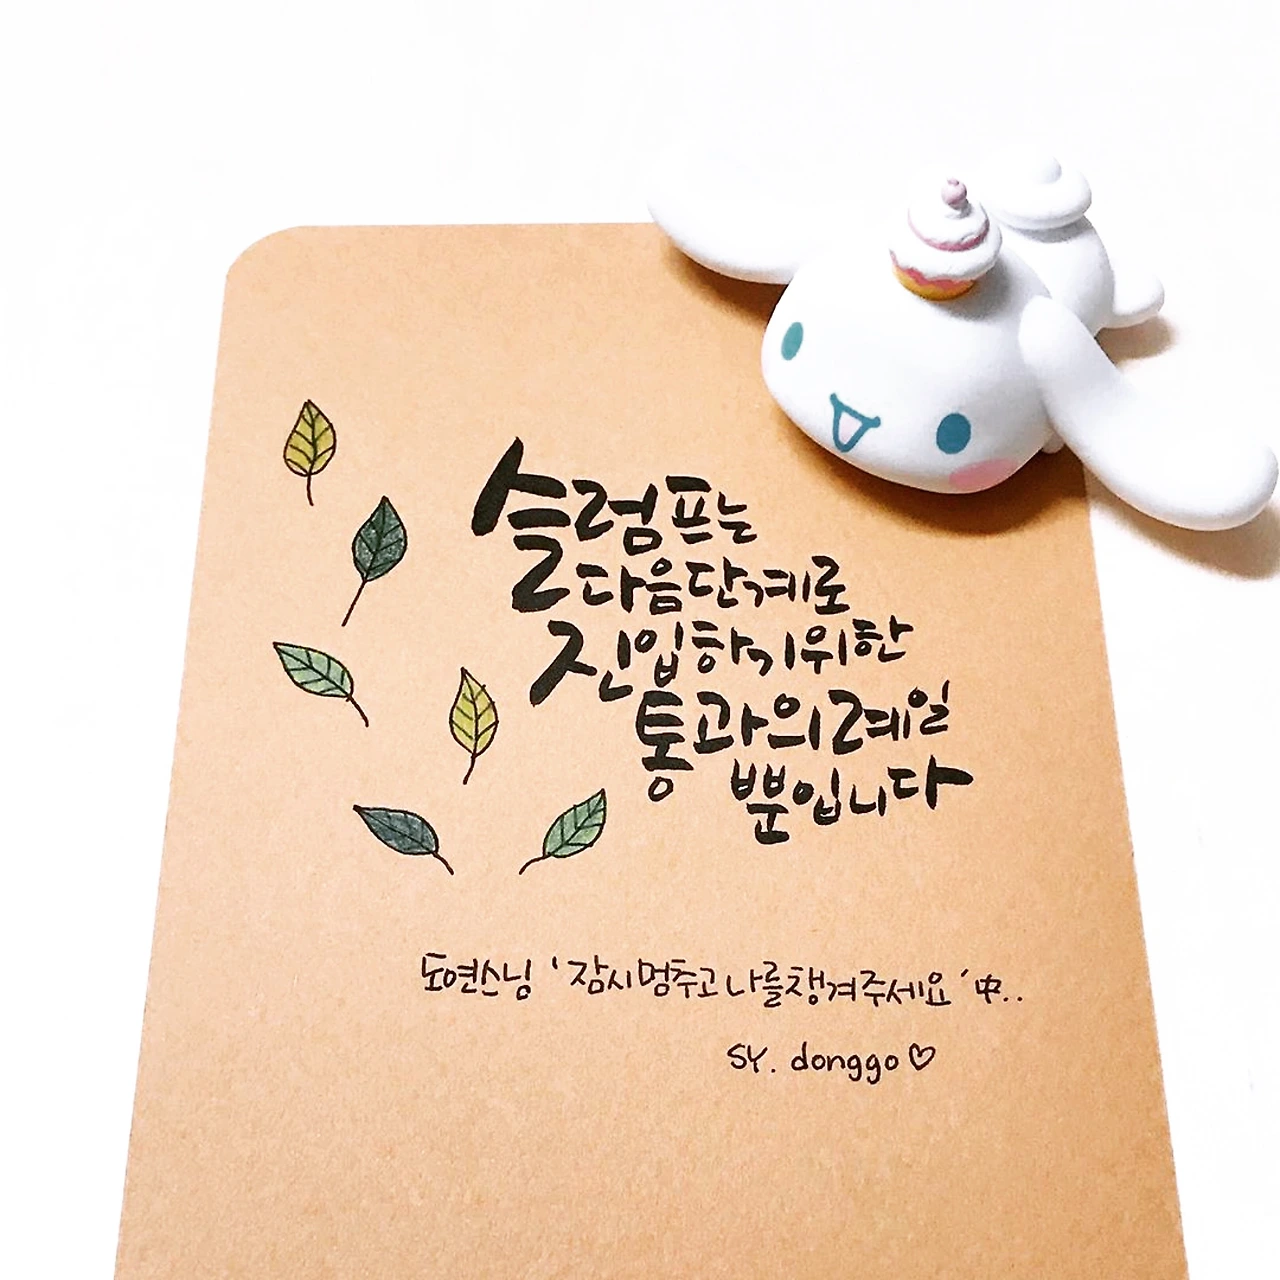 슬럼프는
다음단계로
진입하기위한
통과의례일
뿐입니다
도연스님 '잠시멈추고나를챙겨주세요' 中..
SY. donggo♡